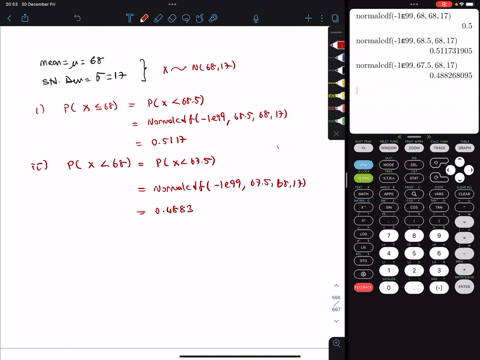 20:53 30 December Fri
mean = μ = 68
std. Dev = σ = 17
X ~ N(68,17)
i) P( X ≤ 68) = P( X < 68.5)
= Normalcdf(-1e99, 68.5, 68, 17)
= 0.5117
ii) P( X < 68) = P( X < 67.5)
= Normalcdf(-1e99, 67.5, 68, 17)
= 0.4883
666
/
667
normalcdf(-1ᴇ99, 68, 68, 17)
0.5
normalcdf(-1ᴇ99, 68.5, 68, 17)
0.511731905
normalcdf(-1ᴇ99, 67.5, 68, 17)
0.488268095
Y= WINDOW ZOOM TRACE GRAPH
MODE DEL
ALPHA X,T,θ,n STAT
MATH APPS PRGM VARS CLEAR
SIN COS TAN ^
( ) ÷
LOG 7 8 9 ×
LN 4 5 6 −
STO 1 2 3 +
0 . (-) ENTER